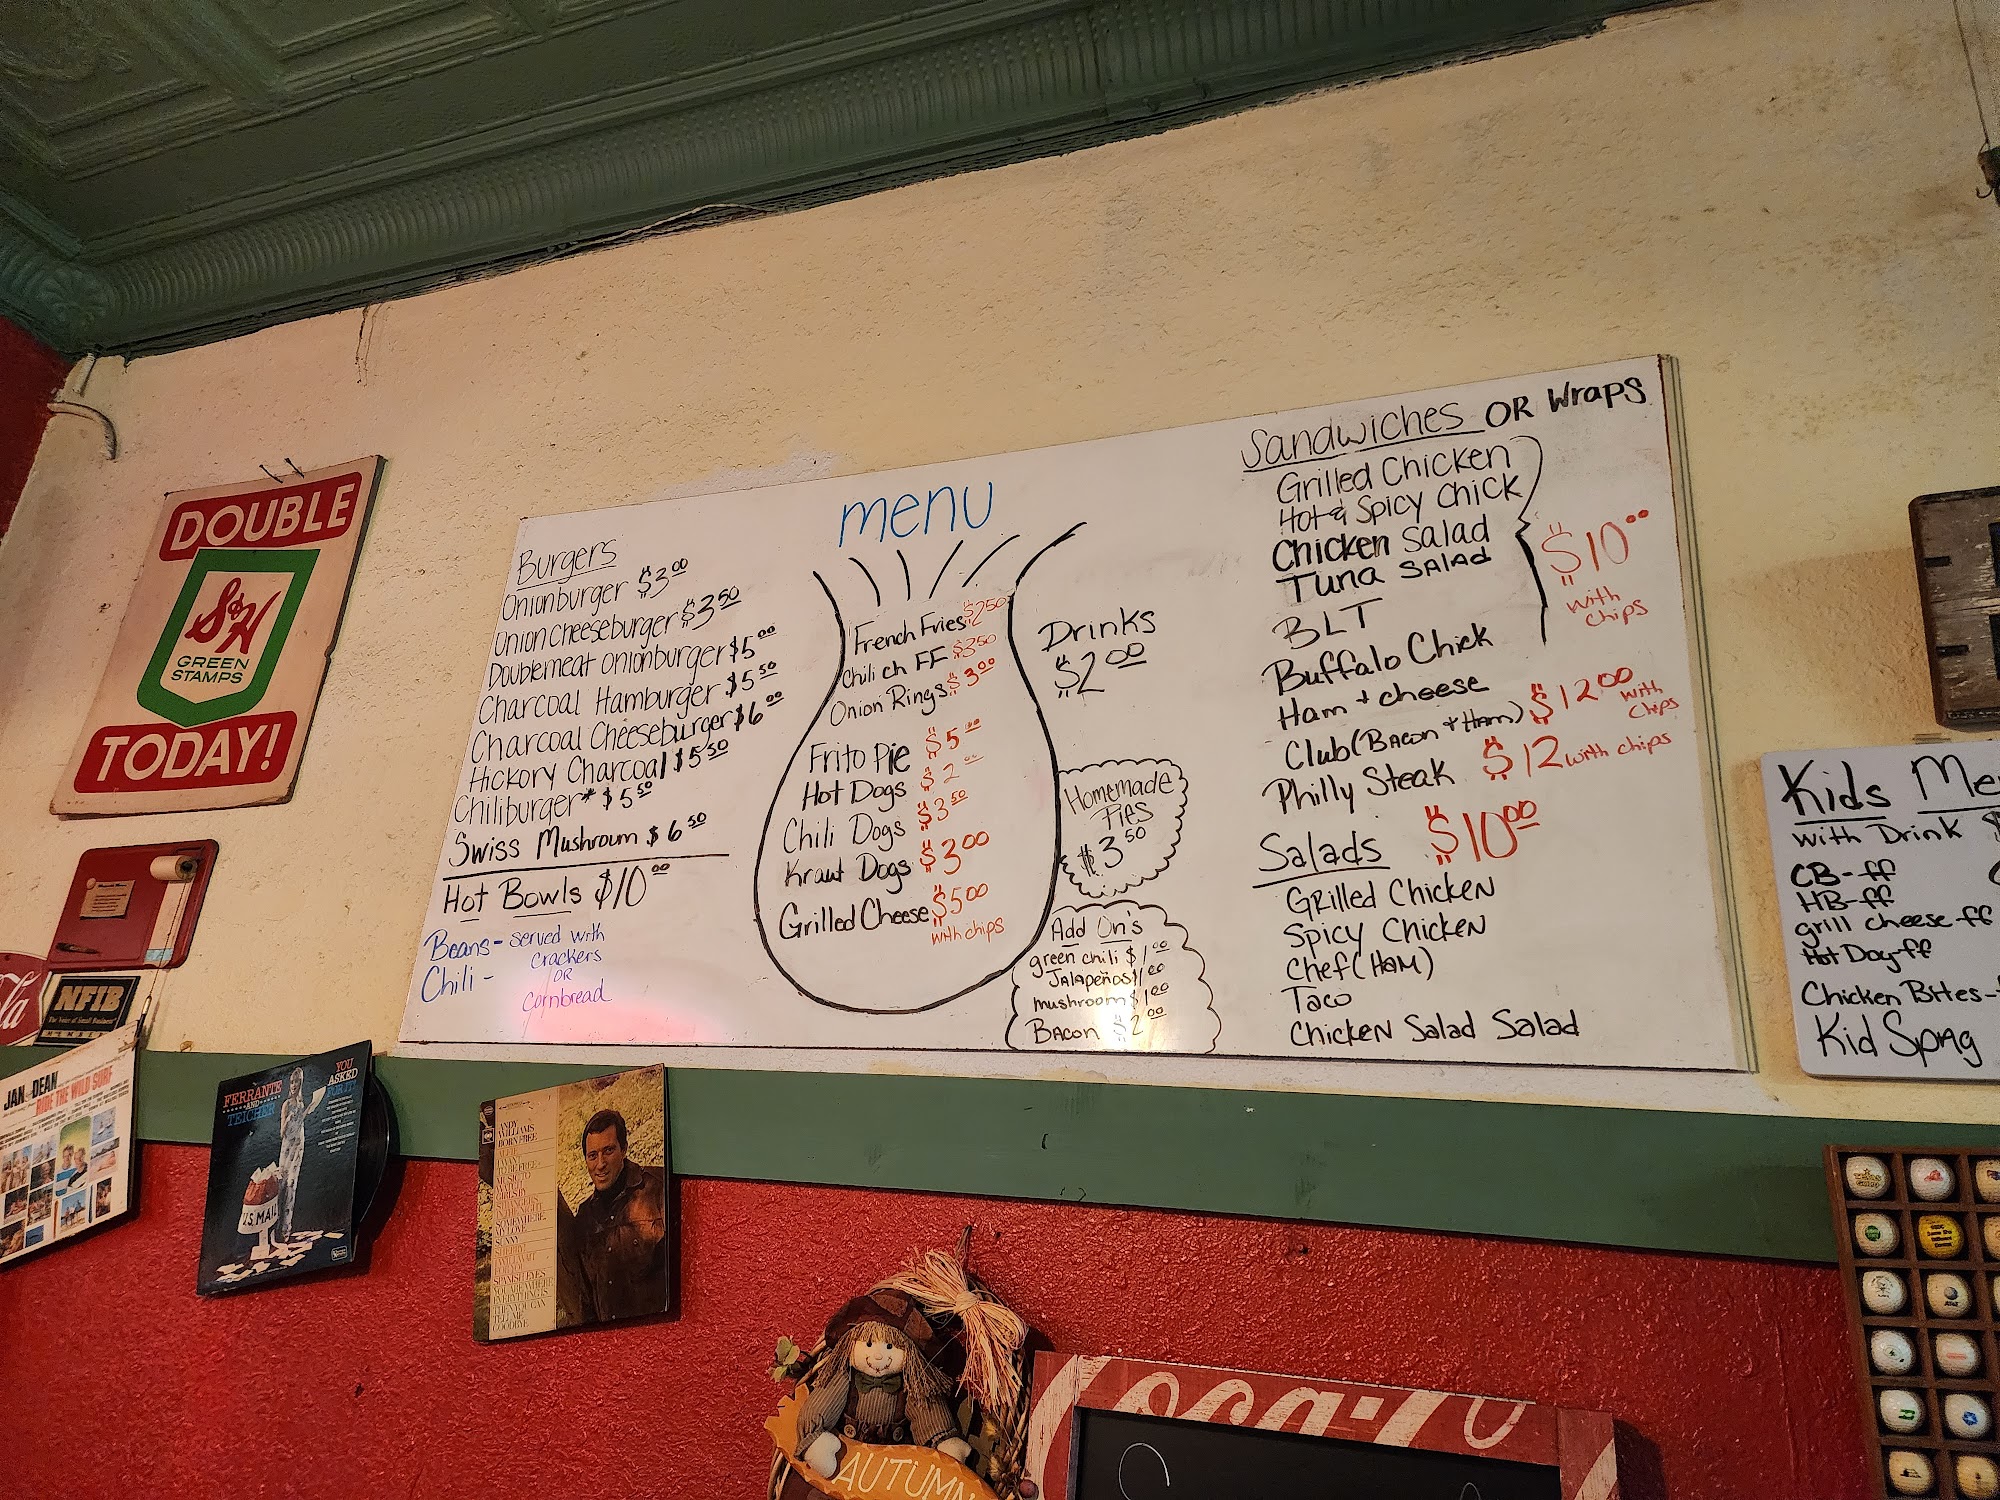 DOUBLE
S&H
GREEN
STAMPS
TODAY!
menu
Burgers
Onionburger $3.00
Onion cheeseburger $3.50
Doublemeat onionburger $5.00
Charcoal Hamburger $5.50
Charcoal Cheeseburger $6.00
Hickory Charcoal $5.50
Chiliburger* $5.50
Swiss Mushroom $6.50
Hot Bowls $10.00
Beans - served with
crackers
OR
cornbread
Chili -
French Fries $2.50
Chili ch FF $3.50
Onion Rings $3.00
Frito Pie $5.00
Hot Dogs $2.00
Chili Dogs $3.50
Kraut Dogs $3.00
Grilled Cheese $5.00
with chips
Drinks
$2.00
Homemade
Pies
$3.50
Add On's
green chili $1.00
Jalapeños $1.00
mushroom $1.00
Bacon $2.00
Sandwiches OR Wraps
Grilled Chicken
Hot & Spicy Chick
Chicken Salad
Tuna SALAd
BLT
$10.00
with
chips
Buffalo Chick
Ham + cheese
Club (Bacon + Ham) $12.00 with
chips
Philly Steak $12 with chips
Salads $10.00
Grilled Chicken
Spicy Chicken
Chef (HAM)
Taco
Chicken Salad Salad
Kids Me
with Drink
CB-ff
HB-ff
grill cheese-ff
Hot Dog-ff
Chicken Bites-
Kid Sprg
NFIB
The Voice of Small Business
MEMBER
JAN & DEAN
RIDE THE WILD SURF
FERRANTE
AND
TEICHER
YOU
ASKED
FOR IT!
U.S. MAIL
ANDY
WILLIAMS
BORN FREE
SOMEWHERE
MY LOVE
SUNNY
SHERRY
SPANISH EYES
THEN YOU CAN
TELL ME
GOODBYE
AUTUMN
Coca-Co